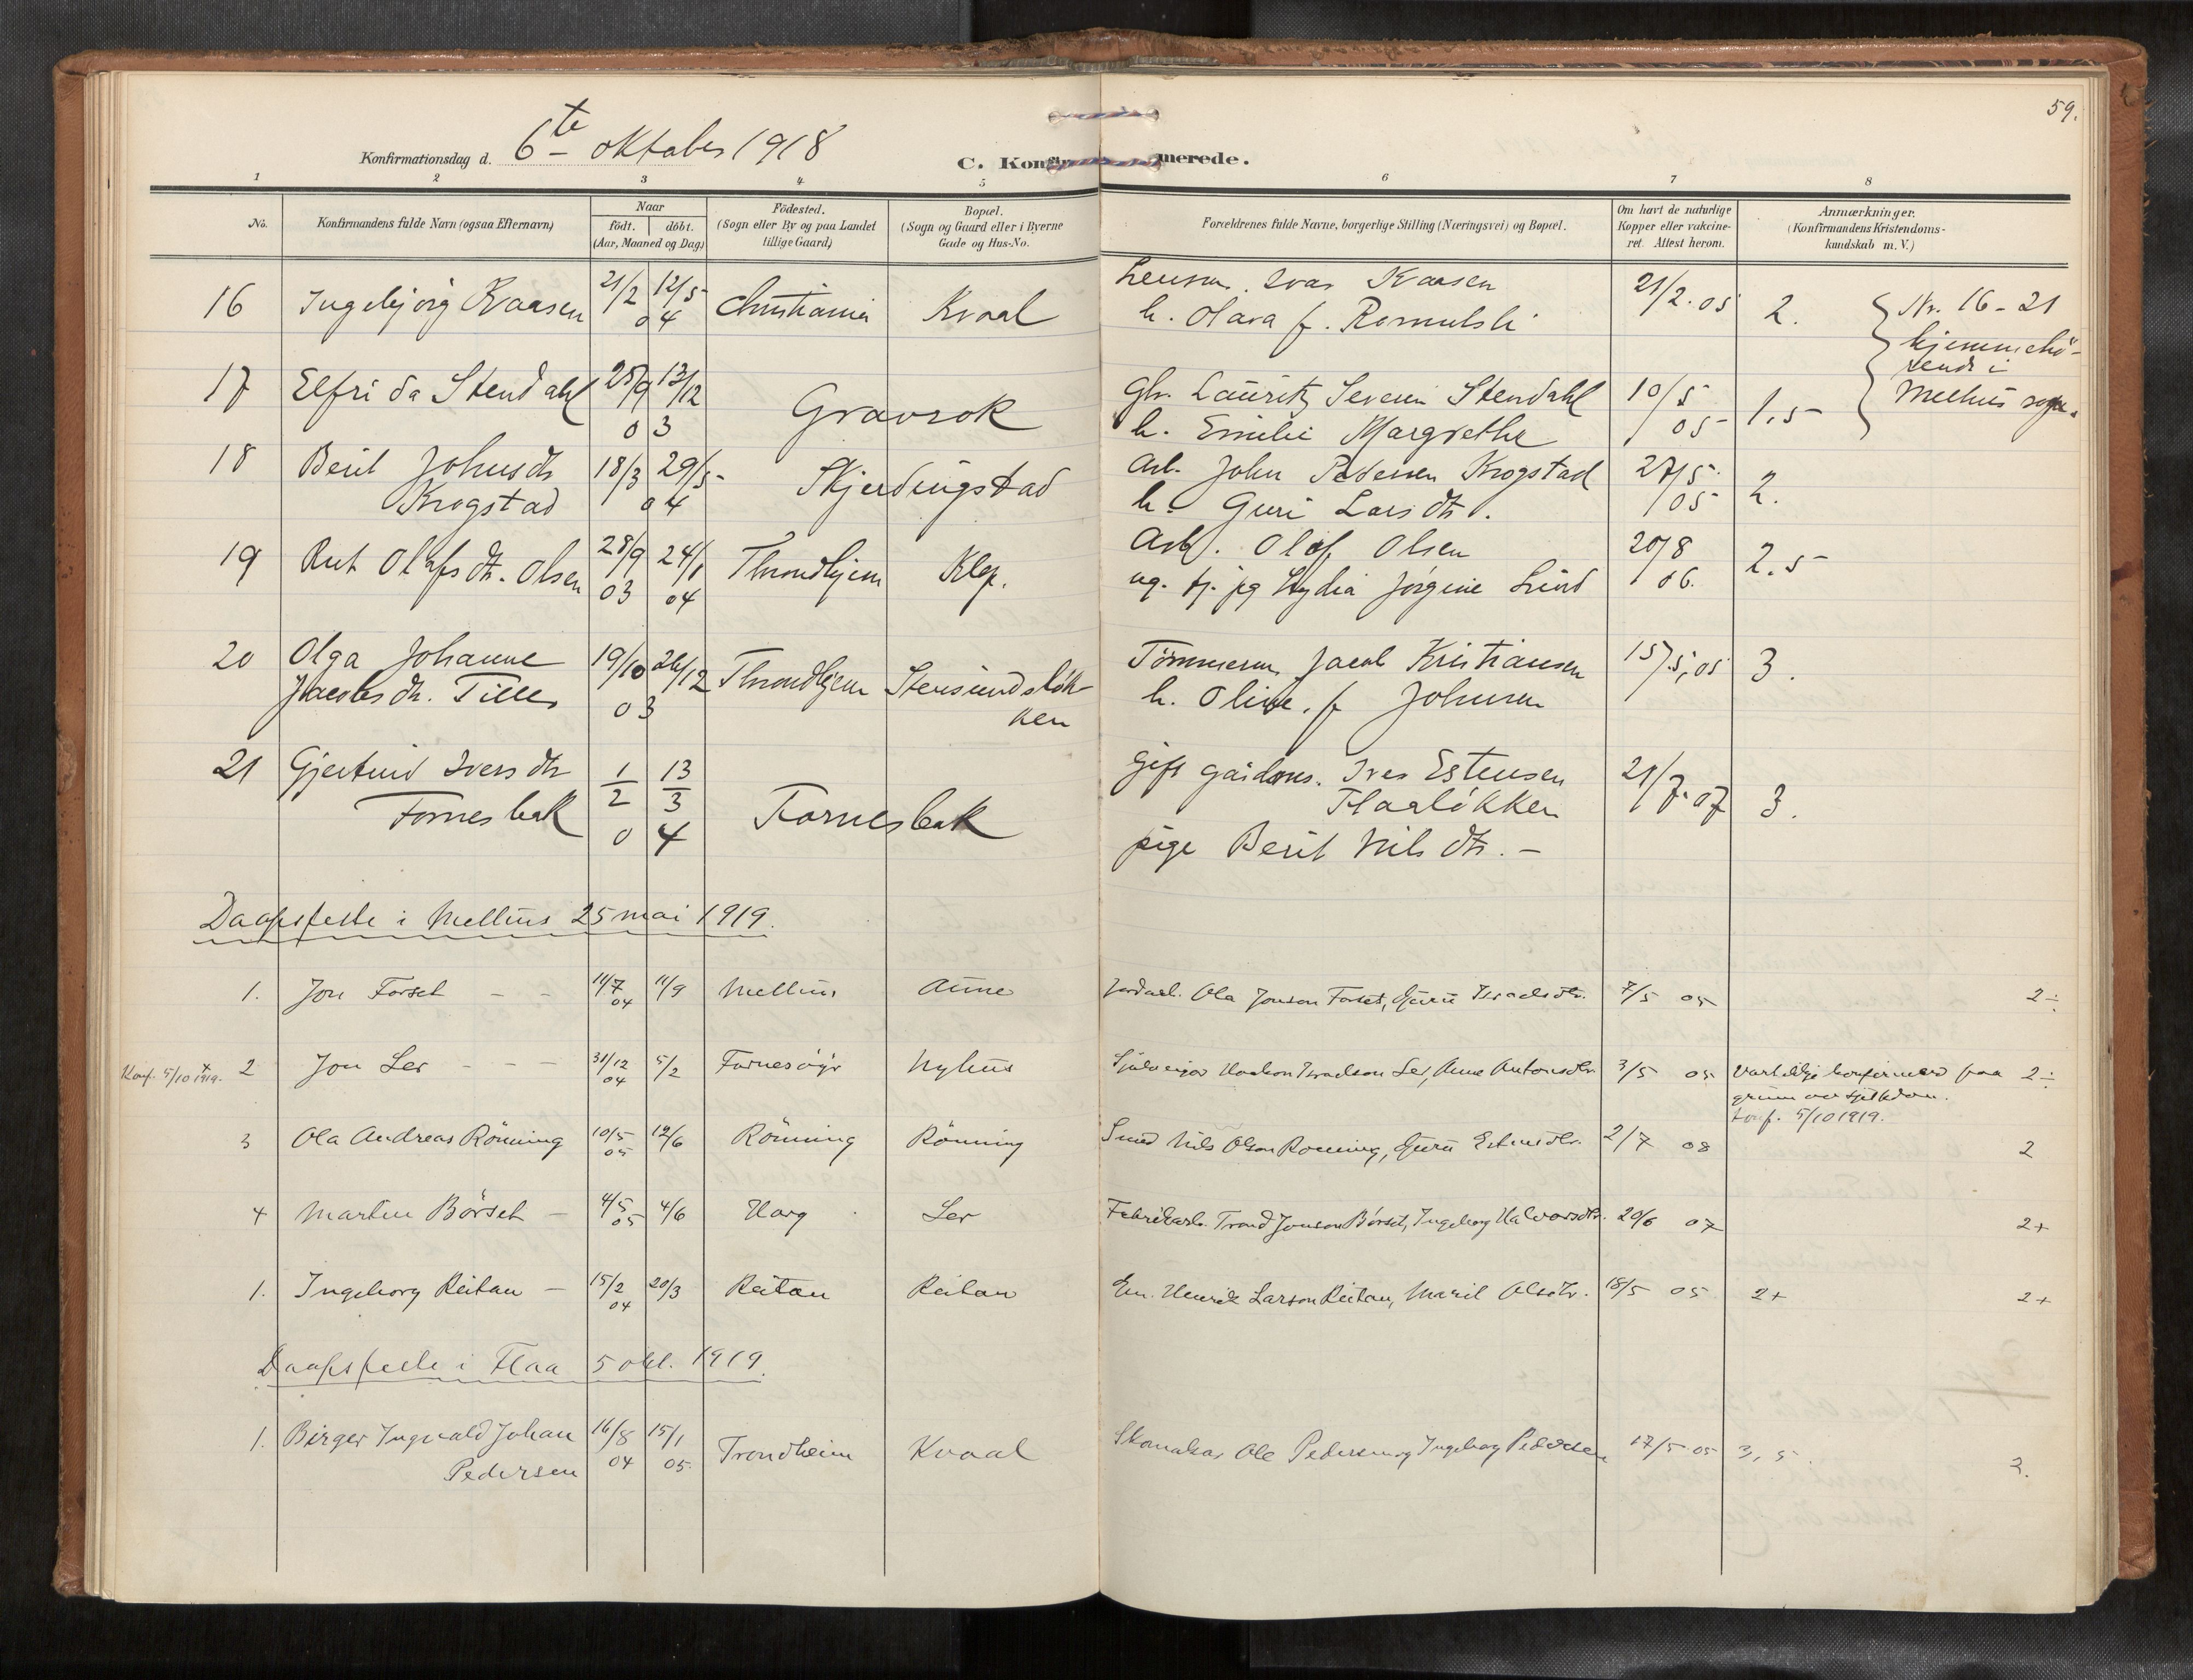 59.
Konfirmationsdag d. 6te oktober 1918
C. Konfirmerede.
1 2 3 4 5 6 7 8
No.
Konfirmandens fulde Navn (ogsaa Efternavn)
Naar
födt. döbt.
(Aar, Maaned og Dag)
Födested.
(Sogn eller By og paa Landet
tillige Gaard)
Bopæl.
(Sogn og Gaard eller i Byerne
Gade og Hus-No.
Forældrenes fulde Navne, borgerlige Stilling (Næringsvei) og Bopæl.
Om havt de naturlige
Kopper eller vakcine-
ret. Attest herom.
Anmærkninger.
(Konfirmandens Kristendoms-
kundskab m. V.)
16 Ingebjörg Kvaasen 21/2 12/5 04 Christiania Kvaal
Ivar Kvaasen
h. Olava f. 21/2. 05 2.
Nr. 16 - 21
hjemmehö-
rende i
Melhus sogn.
17 Elfrida Stendahl 25/9 13/12 03 Gravrok
Gbr. Lauritz Severin Stendahl
h. Emilie Margrethe 10/5 05 1.5
18 Berit Johnsdtr
Krogstad 18/3 29/5 04 Skjerdingstad
Arb. John Pedersen Krogstad
h. Guri Larsdtr. 27/5 05 2.
19 Rut Olafsdtr. Olsen 28/9 03 24/1 04 Throndhjem Klep.
Arb. Olaf Olsen
ug. tj. pg Lydia Jörgine Lund 20/8 06. 2.5
20 Olga Johanne
Jacobsdtr. Tiller 19/10 26/12 03 Throndhjem Stensundslök-
ken
Tömmerm. Jacob Kristiansen
h. Oline. f Johnsen 15/5, 05 3.
21 Gjertrud Iversdtr
Fornesbak 1/2 13/3 04 Fornesbak
Gift gaardmr. Iver Estensen
Flaalökken
pige Berit Nilsdtr. - 21/7. 07 3.
Daapspfeste i Melhus 25 mai 1919.
1. Jon Forset - - 11/7 04 11/9 Melhus Aune
Jordarb. Ola Jonson Forset, Guru Israelsdtr. 7/5 05 2÷
Konf. 5/10 1919. 2 Jon Ler - - - 31/12 04 5/2 Fornesöyr Nyhus
Sjöleigar Haakon Israelson Ler, Anne Antonsdtr. 3/5 05 Vart ikkje konfirmerd paa 2÷
grunn av sjukdom.
konf. 5/10 1919.
3 Ola Andreas Rönning 10/5 05 12/6 Rönning Rönning
Smed Nils Olson Rönning, Guru Estensdtr. 2/7 08 2
4 Martin Börset - 4/5 05 4/6 Horg Ler
Fabrikarb. Trond Jonson Börset, Ingeborg Halvorsdtr. 20/6 07 2+
1. Ingeborg Reitan - 15/2 04 20/3 Reitan Reitan
Em. Henrik Larson Reitan, Marit Olsdtr. 18/5 05 2+ 2+
Daapsfeste i Flaa 5 okt. 1919.
1. Birger Ingvald Johan
Pedersen 16/8 04 15/1 05. Trondheim Kvaal
Skomakar Ole Pedersen og Ingeborg Pedersen 17/5 05 3,5. 2.